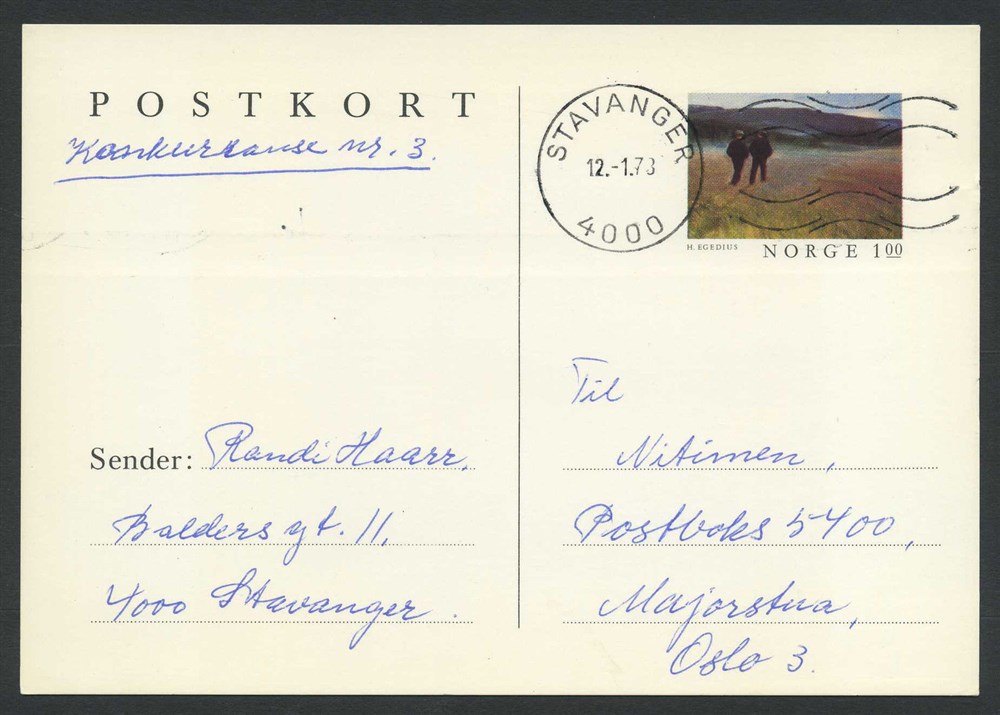 POSTKORT
Konkurranse nr. 3.
STAVANGER
12.-1.78
4000
H. EGEDIUS
NORGE 1 00
Sender: Randi Haarr,
Balders gt. 11,
4000 Stavanger.
Til
Nitimen,
Postboks 5400,
Majorstua,
Oslo 3.